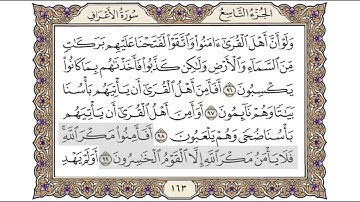 الجزء التاسع
سورة الأعراف
وَلَوْ أَنَّ أَهْلَ ٱلْقُرَىٰٓ ءَامَنُوا۟ وَٱتَّقَوْا۟ لَفَتَحْنَا عَلَيْهِم بَرَكَٰتٍ
مِّنَ ٱلسَّمَآءِ وَٱلْأَرْضِ وَلَٰكِن كَذَّبُوا۟ فَأَخَذْنَٰهُم بِمَا كَانُوا۟
يَكْسِبُونَ ٩٦ أَفَأَمِنَ أَهْلُ ٱلْقُرَىٰٓ أَن يَأْتِيَهُم بَأْسُنَا
بَيَٰتًا وَهُمْ نَآئِمُونَ ٩٧ أَوَأَمِنَ أَهْلُ ٱلْقُرَىٰٓ أَن يَأْتِيَهُم
بَأْسُنَا ضُحًى وَهُمْ يَلْعَبُونَ ٩٨ أَفَأَمِنُوا۟ مَكْرَ ٱللَّهِ ۚ
فَلَا يَأْمَنُ مَكْرَ ٱللَّهِ إِلَّا ٱلْقَوْمُ ٱلْخَٰسِرُونَ ٩٩ أَوَلَمْ يَهْدِ
١٦٣